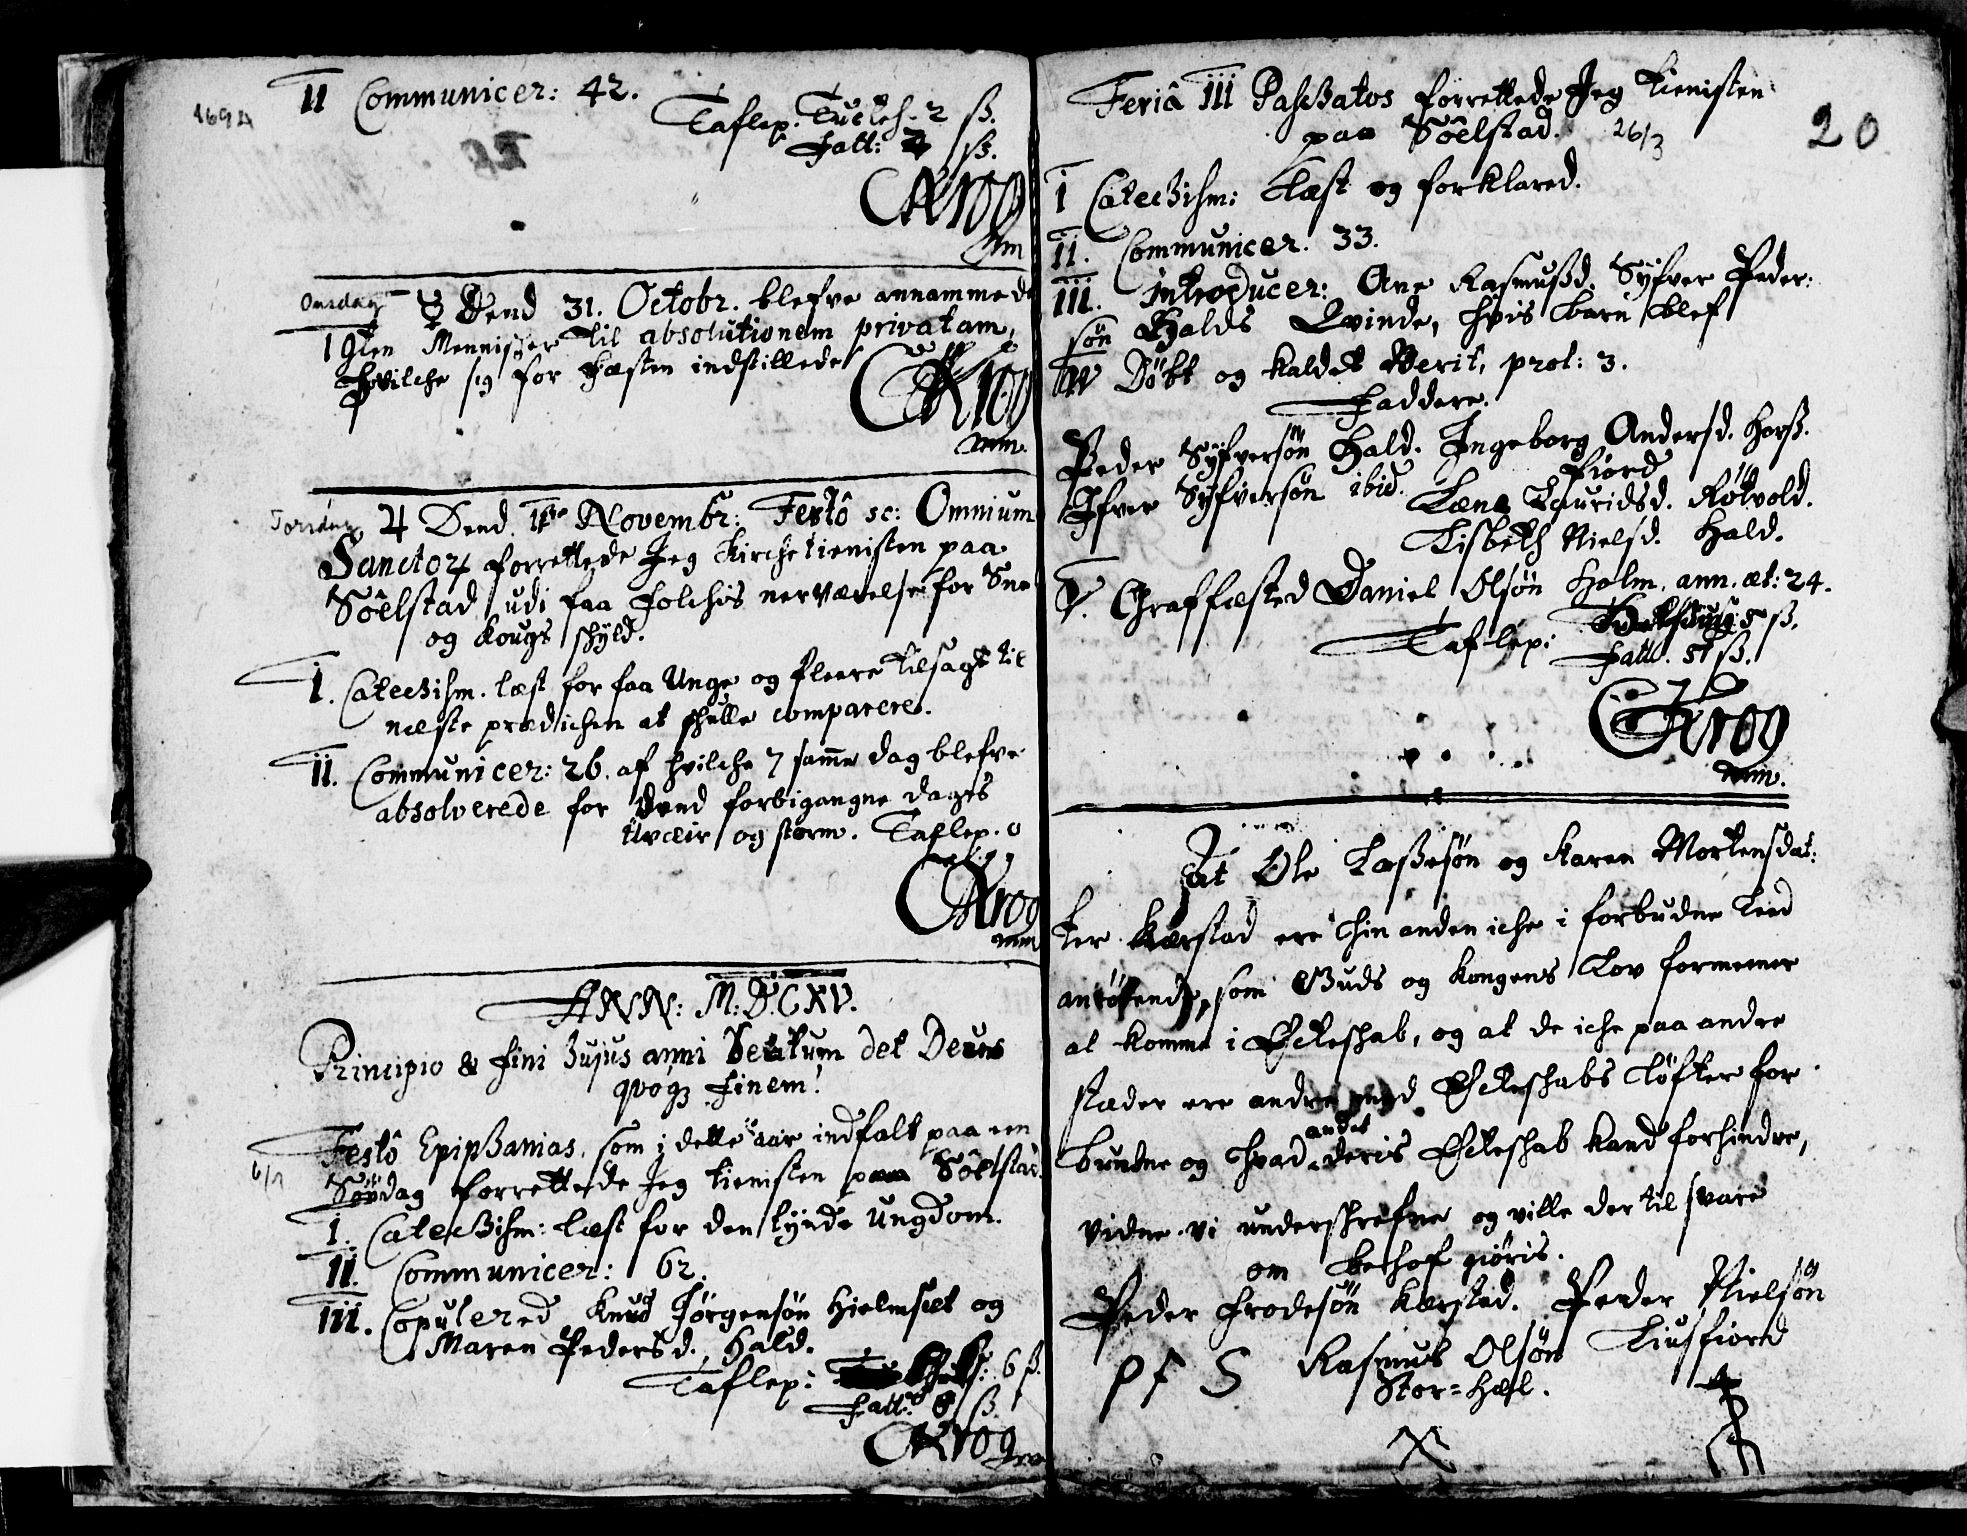 1694
II Communicer: 42.
Taflep: Tucths. 2 ß.
Fatt: 2 ß.
CKrog
mm
Onsdag ☿ Dend 31. Octobr. blefve annammede
19ten Mennisker til absolutionem privatam,
hvilche sig for Fæsten indstillede
CKrog
mm.
Torsdag ♃ Dend 1ste Novembr: Festô sc: Omnium
Sanctor forrettede Jeg Kirchetienisten paa
Söelstad udi faa Folchis nerværelse for Sne
og kougs skyld.
I. Catechism. læst for faa Unge og fleere tilsagt til
neste prædichen at skulle comparere.
II. Communicer: 26. af hvilche 7 same dag blefve
absolverede for dend forbigangne dages
Uvæir og storm. Taflep. 0
CKrog
mm
ANN: M.DCXV.
Principio & fini hujus anni Lætum det Deus
qvoq finem!
Festô Epiphanias, som i dette aar indfalt paa een
6/1 Søndag forrettede Jeg tienisten paa Söelstad.
I. Catechism: læst for den tynde Ungdom.
II. Communicer: 62.
III. Copulered Knud Jörgensön Hielmset og
Maren Pedersd. Hald.
Taflep: 6 ß.
Fatt: 8 ß.
CKrog
mm
20
Feriâ III Paschatos forrettede Jeg Tienisten
paa Söelstad. 26/3
I Catechism: Læst og forklared.
II. Communicer. 33.
III. Introducer: Ane Rasmußd. Syfver Peder:
sön Halds Qvinde, hvis barn blef
IV Döbt og kaldet Berit, prot: 3.
Faddere.
Peder Syfversön Hald. Ingeborg Andersd. Horß.
fiord
Ifver Syfversön ibid. Lene Lauridsd. Rötvold.
Lisbeth Nielsd. Hald.
V. Graffæsted Daniel Olsön Holm. ann. æt: 24.
Taflep: 5 ß.
Fatt. 51 ß.
CKrog
mm.
At Ole Laßesön og Karen Mortensdat:
ter Kerstad ere hin anden iche i forbudne Leed
anrörende, som Guds og Kongens Lov formeener
at komme i Ecteskab, og at de iche paa andre
stæder ere andre med Ecteskabs Löfter for
bundne og hvad andet deris Ecteskab kand forhindre,
vidne vi underskrefne og ville der til svare
om behof giöris.
Peder Frodesön Kerstad. Peder Nielsön
Liusfiord
P F S Rasmus Olsön
Stor=Hæl.